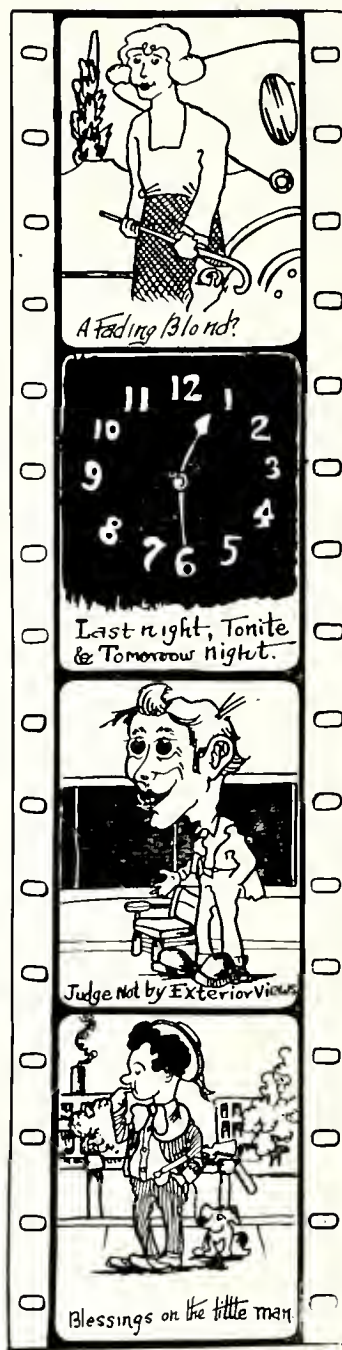 A Fading Blond?
11 12 1
10 2
9 3
8 4
7 6 5
Last night, Tonite
& Tomorrow night.
Judge Not by Exterior Views
Blessings on the little man